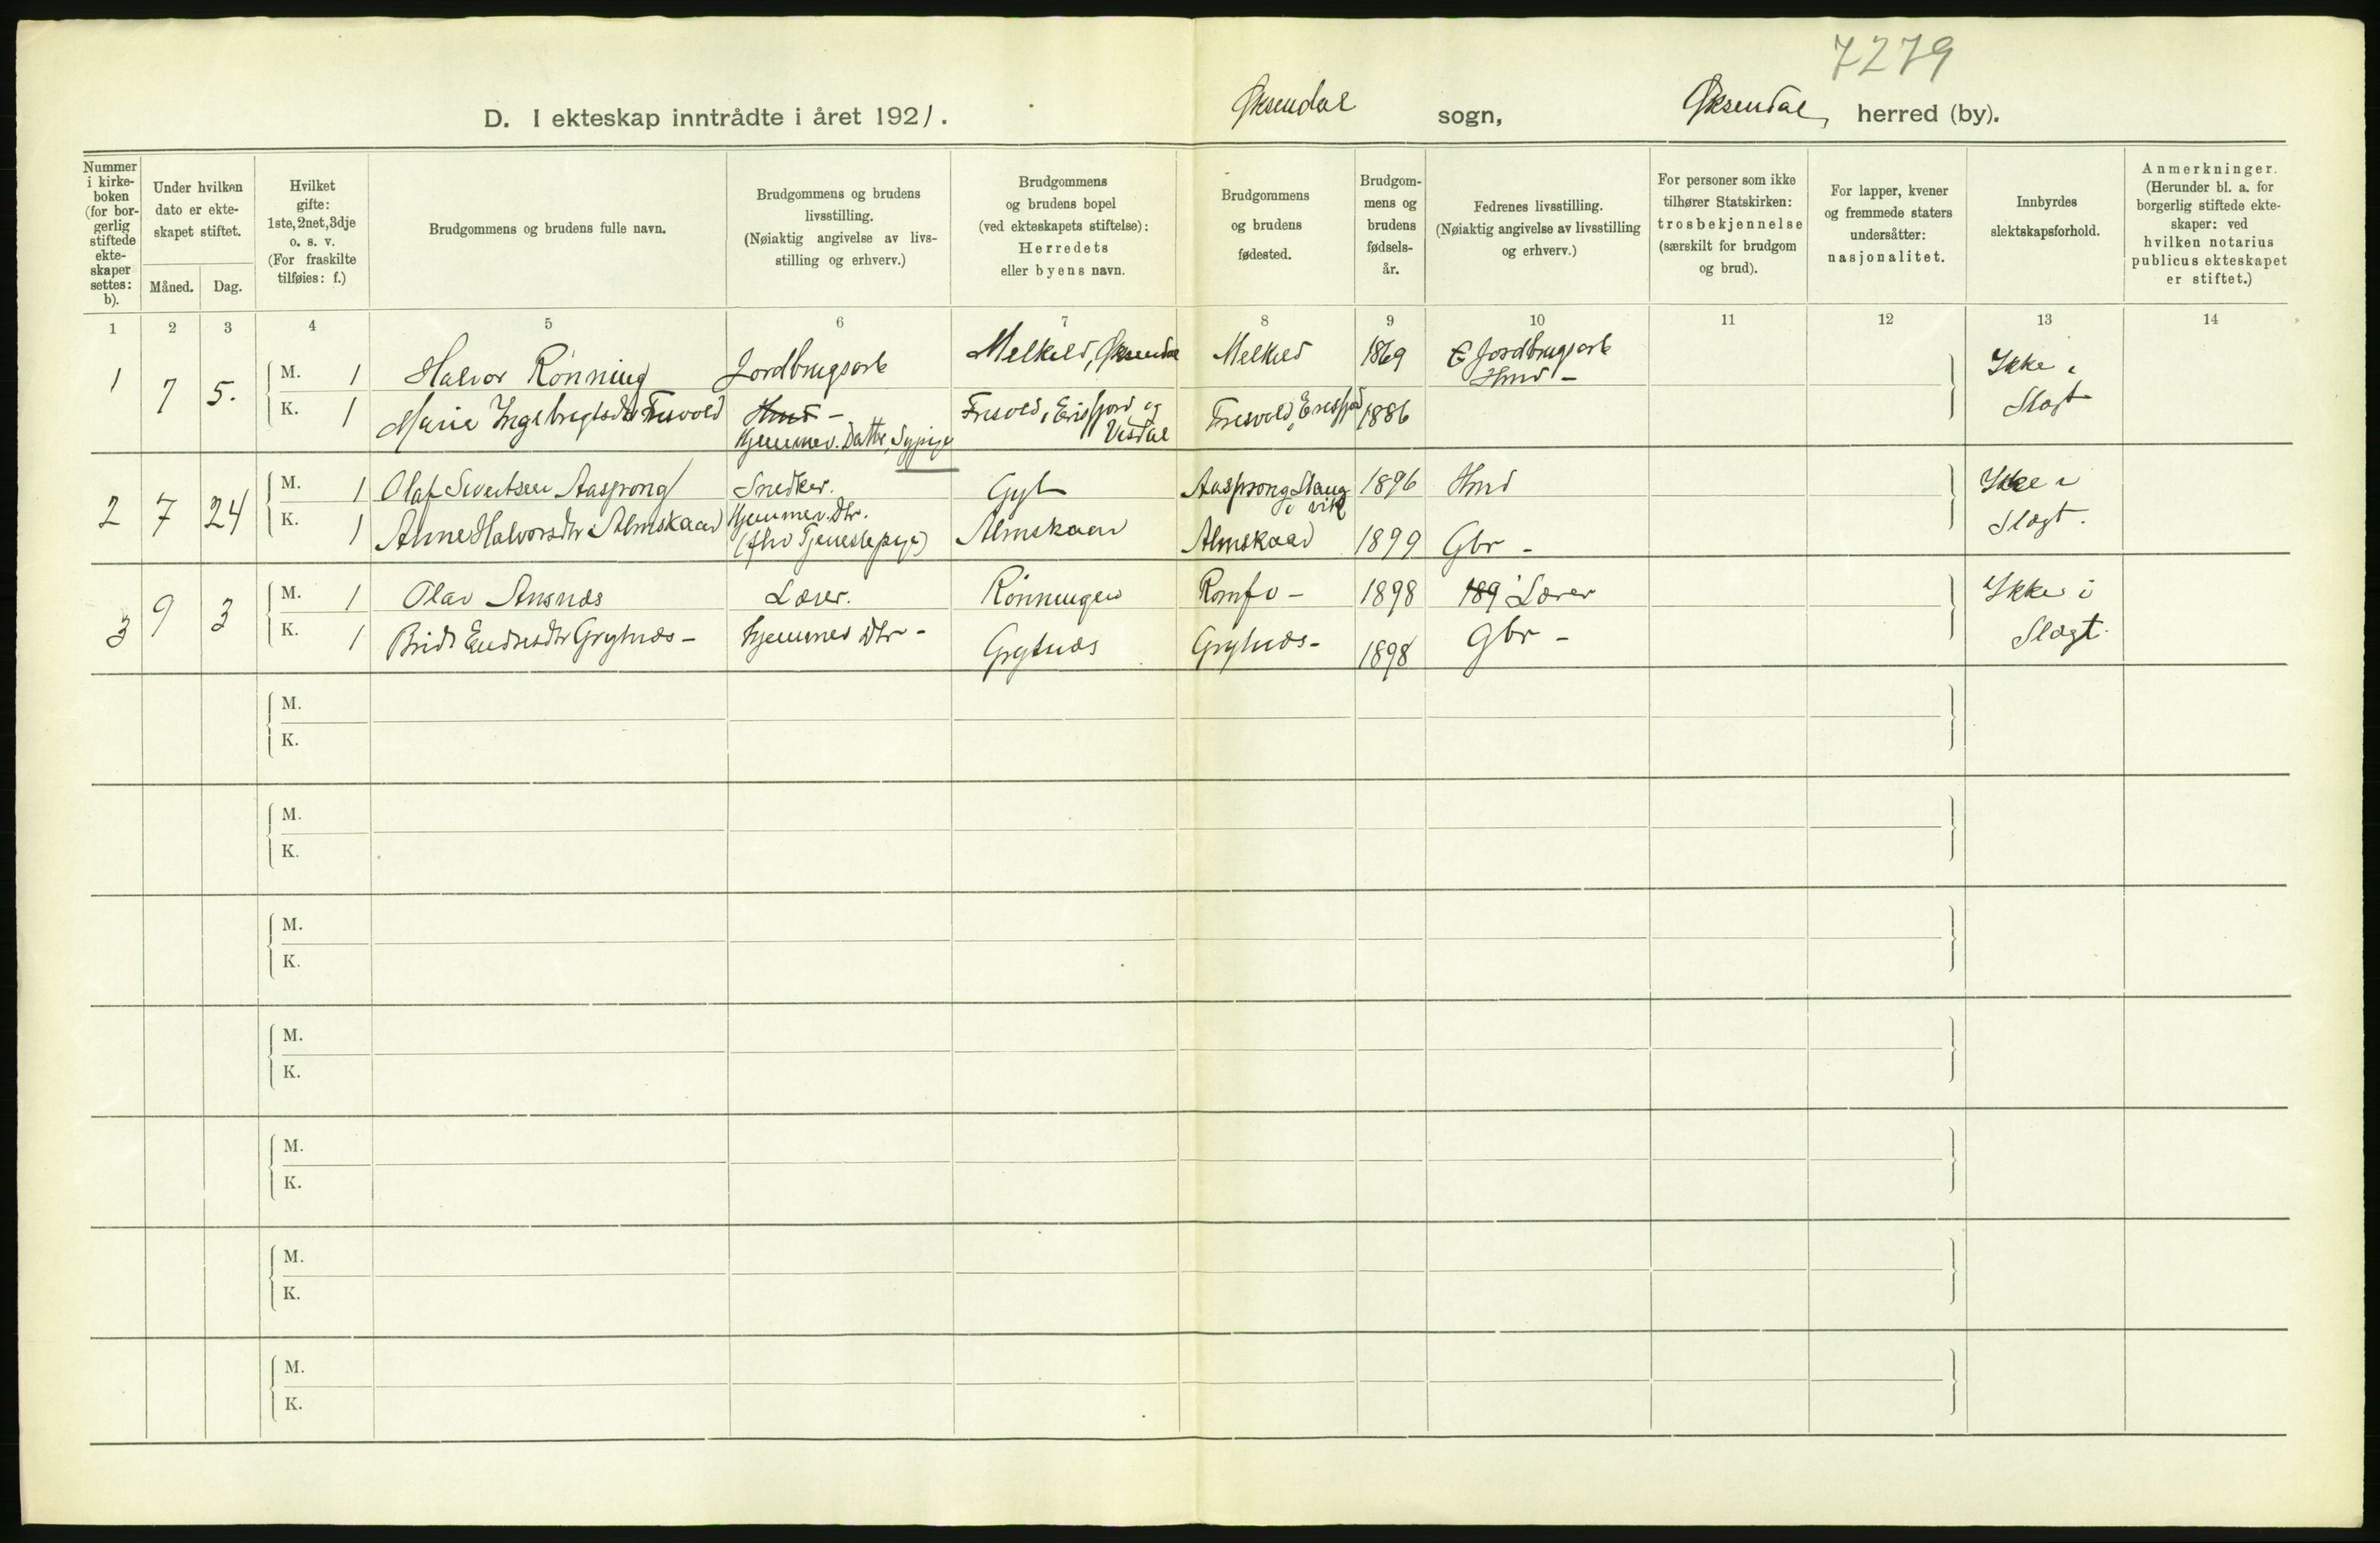 7279
D. I ekteskap inntrådte i året 1921. Øksendal sogn, Øksendal, herred (by).
Nummer i kirkeboken (for borgerlig stiftede ekteskaper settes: b).
Under hvilken dato er ekteskapet stiftet.
Måned. Dag.
Hvilket gifte: 1ste, 2net, 3dje o. s. v. (For fraskilte tilføies: f.)
Brudgommens og brudens fulle navn.
Brudgommens og brudens livsstilling. (Nøiaktig angivelse av livsstilling og erhverv.)
Brudgommens og brudens bopel (ved ekteskapets stiftelse): Herredets eller byens navn.
Brudgommens og brudens fødested.
Brudgommens og brudens fødselsår.
Fedrenes livsstilling. (Nøiaktig angivelse av livsstilling og erhverv.)
For personer som ikke tilhører Statskirken: trosbekjennelse (særskilt for brudgom og brud).
For lapper, kvener og fremmede staters undersåtter: nasjonalitet.
Innbyrdes slektskapsforhold.
Anmerkninger. (Herunder bl. a. for borgerlig stiftede ekteskaper: ved hvilken notarius publicus ekteskapet er stiftet.)
1 2 3 4 5 6 7 8 9 10 11 12 13 14
1 7 5. M. 1 Halvor Rønning Jordbrugsarb Melkild, Øksendal Melkild 1869 Jordbrugsarb Ikke i
K. 1 Marie Ingebrigtsdtr Fresvold Hmd - Fresvold, Erisfjord og Vistdal Fresvold, Eresfjord 1886 Hmd - Slægt
Hjemmev. Datter, Sypige
2 7 24 M. 1 Olaf Sivertsen Aasprong Snedker. Gyl Aasprong Stangvik 1896 Hmd Ikke i
K. 1 Anne Halvorsdtr Almskaar Hjemmev. Dtr. (fhv Tjenestepige) Almskaar Almskaar 1899 Gbr - Slægt.
3 9 3 M. 1 Olav Ansnæs Lærer. Rønningen Romfo - 1898 189 Lærer Ikke i
K. 1 Brit Endresdtr Grytnæs - Hjemmev Dtr - Grytnæs Grytnæs - 1898 Gbr - Slægt.
M.
K.
M.
K.
M.
K.
M.
K.
M.
K.
M.
K.
M.
K.